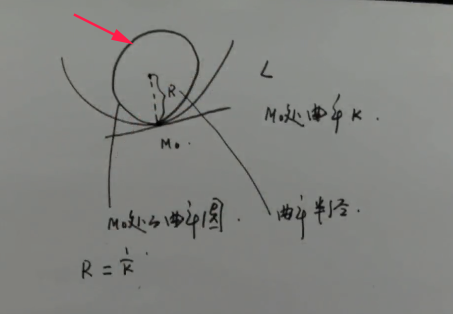 R
L
M₀处曲率K.
M₀.
M₀处的曲率圆.
曲率半径.
R = 1/K